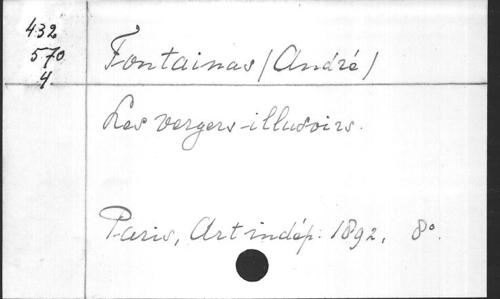 432
570
4
Fontainas (André)
Les vergers illusoirs.
Paris, Art indép: 1892, 8°.